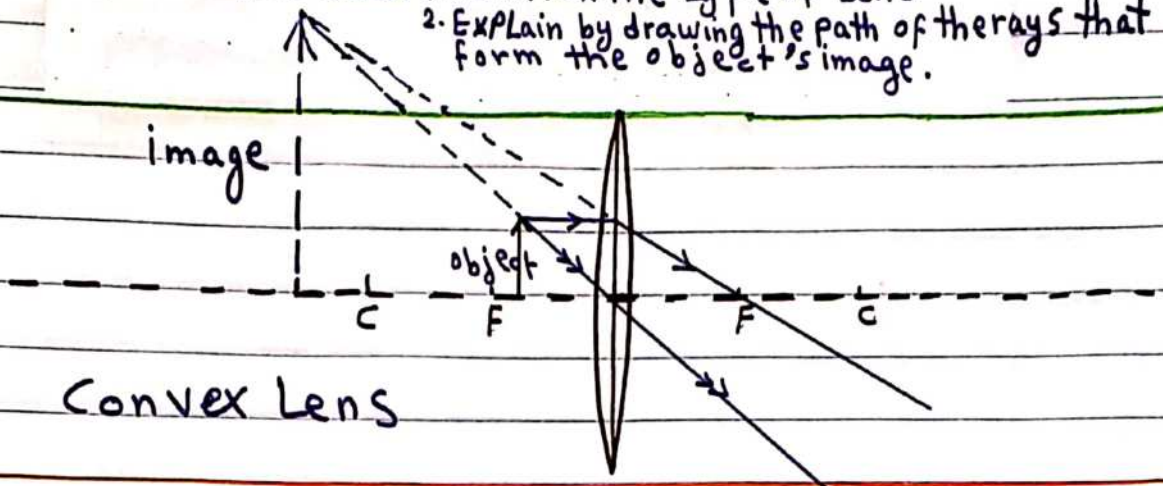 2. Explain by drawing the path of the rays that
form the object's image.
image
object
C F F C
Convex Lens